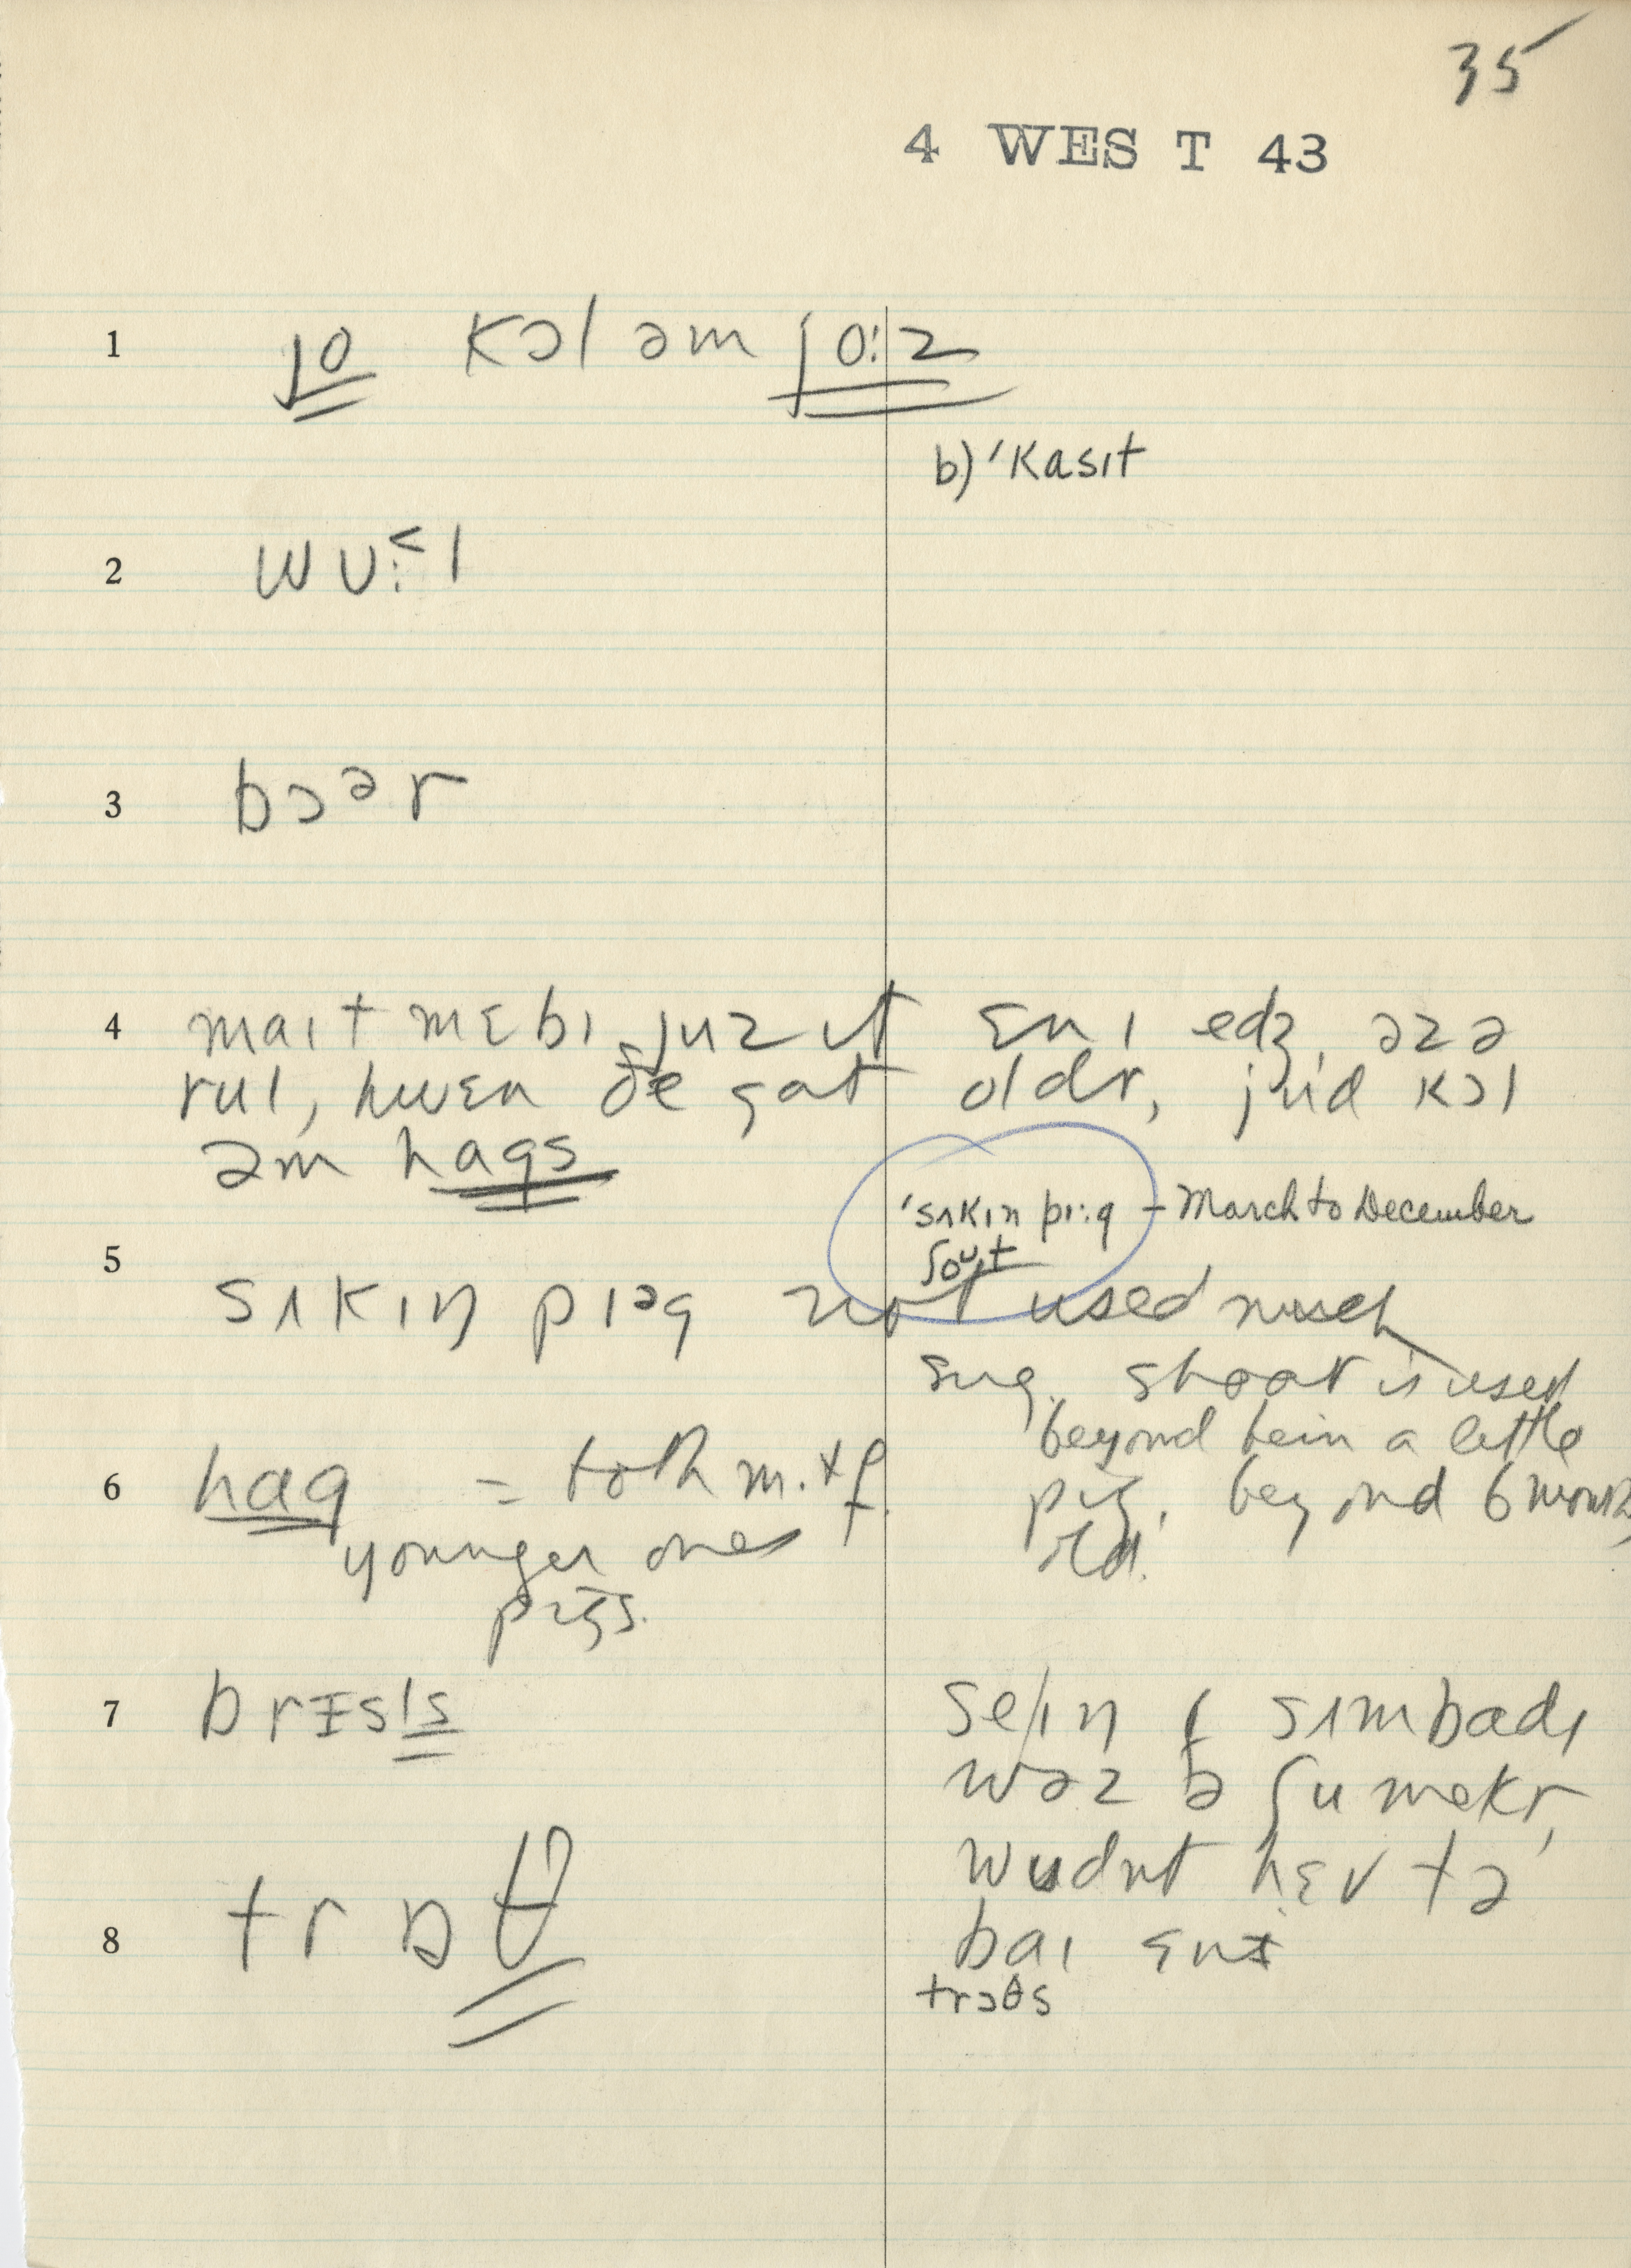 35
4 WEST 43
1 jo kɔl əm jo:z
b) 'kasɪt
2 wʊ:˂l
3 bɔᵊr
4 maɪt mɛbɪ juz ɪt ɛnɪ edʒ, əz ə
rul, hwɛn ðe gat oldr, jud kɔl
əm hags
'sʌkɪn pɪ:g – March to December
ʃoᵘt
5 sʌkɪŋ pɪᵊg not used much
sug. shoat is used
beyond bein a little
6 hag = both m. + f. pig, beyond 6 months
younger ones old.
pigs.
7 brɪsls selɪŋ sʌmbadɪ
wəz ə ʃu mekr,
wudnt hɛv tə
8 trɒθ baɪ ɛnɪ
trɔθs